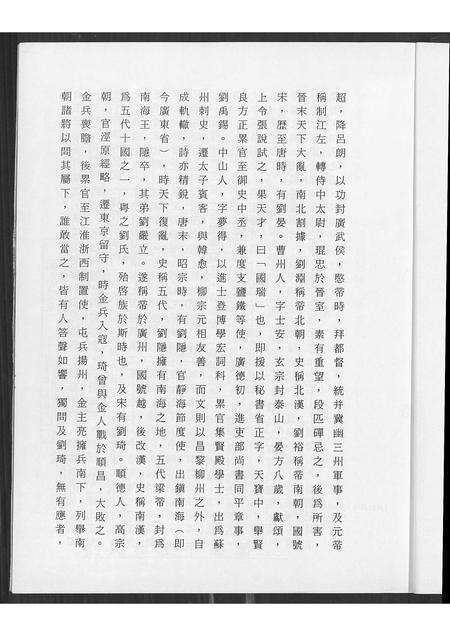 超，降呂朗，以功封廣武侯，愍帝時，拜都督，統并冀幽三州軍事，及元帝
稱制江左，轉侍中太尉，琨忠於晉室，素有重望，段匹磾忌之，後爲所害，
晉末天下大亂，南北割據，劉淵稱帝北朝，史稱北漢，劉裕稱帝南朝，國號
宋，歷至唐時，有劉晏。曹州人，字士安，玄宗封泰山，晏方八歲，獻頌，
上令張說試之，果天才，曰「國瑞」也，即援以秘書省正字，天寶中，舉賢
良方正累官至御史中丞，兼度支鹽鐵等使，廣德初，進吏部尚書同平章事，
劉禹錫。中山人，字夢得，以進士登博學宏詞科，累官集賢殿學士，出爲蘇
州刺史，遷太子賓客，與韓愈，柳宗元相友善，而文則以昌黎柳州之外，自
成軌轍，詩亦精銳，唐末，昭宗時，有劉隱，官靜海節度使，出鎭南海（即
今廣東省），時天下復亂，史稱五代，劉隱擁有南海之地，五代梁帝，封爲
南海王，隱卒，其弟劉嚴立。遂稱帝於廣州，國號越，後改漢，史稱南漢，
爲五代十國之一，粵之劉氏，殆啓族於斯時也，及宋有劉琦。順德人，高宗
朝，官涇原經略，遷東京留守，時金兵入寇，琦曾與金人戰於順昌，大敗之。
金兵喪膽，後累官至江淮浙西制置使，屯兵揚州，金主亮擁兵南下，列舉南
朝諸將以問其屬下，誰敢當之，皆有人答聲如響，獨問及劉琦，無有應者，